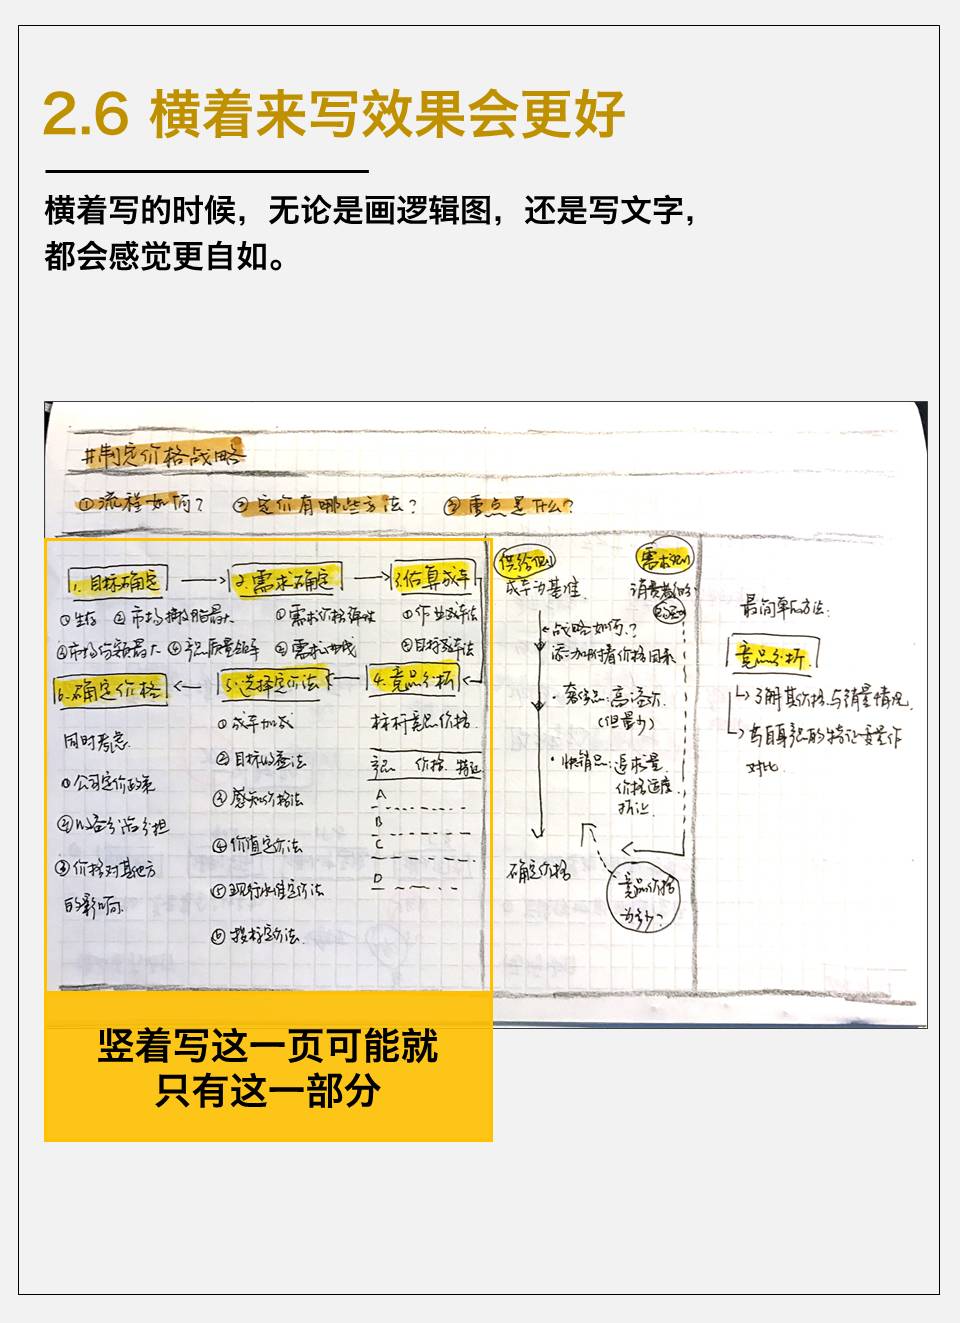 2.6 横着来写效果会更好
横着写的时候，无论是画逻辑图，还是写文字，
都会感觉更自如。
#制定价格战略
①流程如何？ ②定价有哪些方法？ ③重点是什么？
1.目标确定 2.需求确定 3.估算成本
①生存 ②市场撇脂最大 ①需求价格弹性
③市场份额最大 ④产品质量领先 ②需求曲线 ②目标成本法
6.确定价格 5.选择定价法 4.竞品分析
同时考虑
①公司定价政策
③价格对其他方
的影响
①成本加成
②目标收益法
③感知价格法
④价值定价法
⑤现行水准定价法
⑥投标定价法
标杆竞品价格
产品 价格 特征
A
B
C
D
供给侧
成本为基准
战略如何？
添加附着价格因素
·奢侈品：高溢价
（但量少）
·快销品：追求量
价格适度
确定价格
需求侧
消费者的
竞品价格
为多少？
最简单的方法：
竞品分析
了解其价格与销量情况
与自身产品的特征要量作
对比
竖着写这一页可能就
只有这一部分